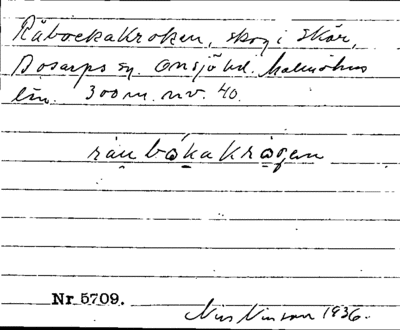 Råbockakroken, skog i Skår,
Bosarps sn. Onsjö hd. Malmöhus
län. 300 m. nv. 40.
råubókakrógen
Nr 5709.
Nils Nilsson 1936.